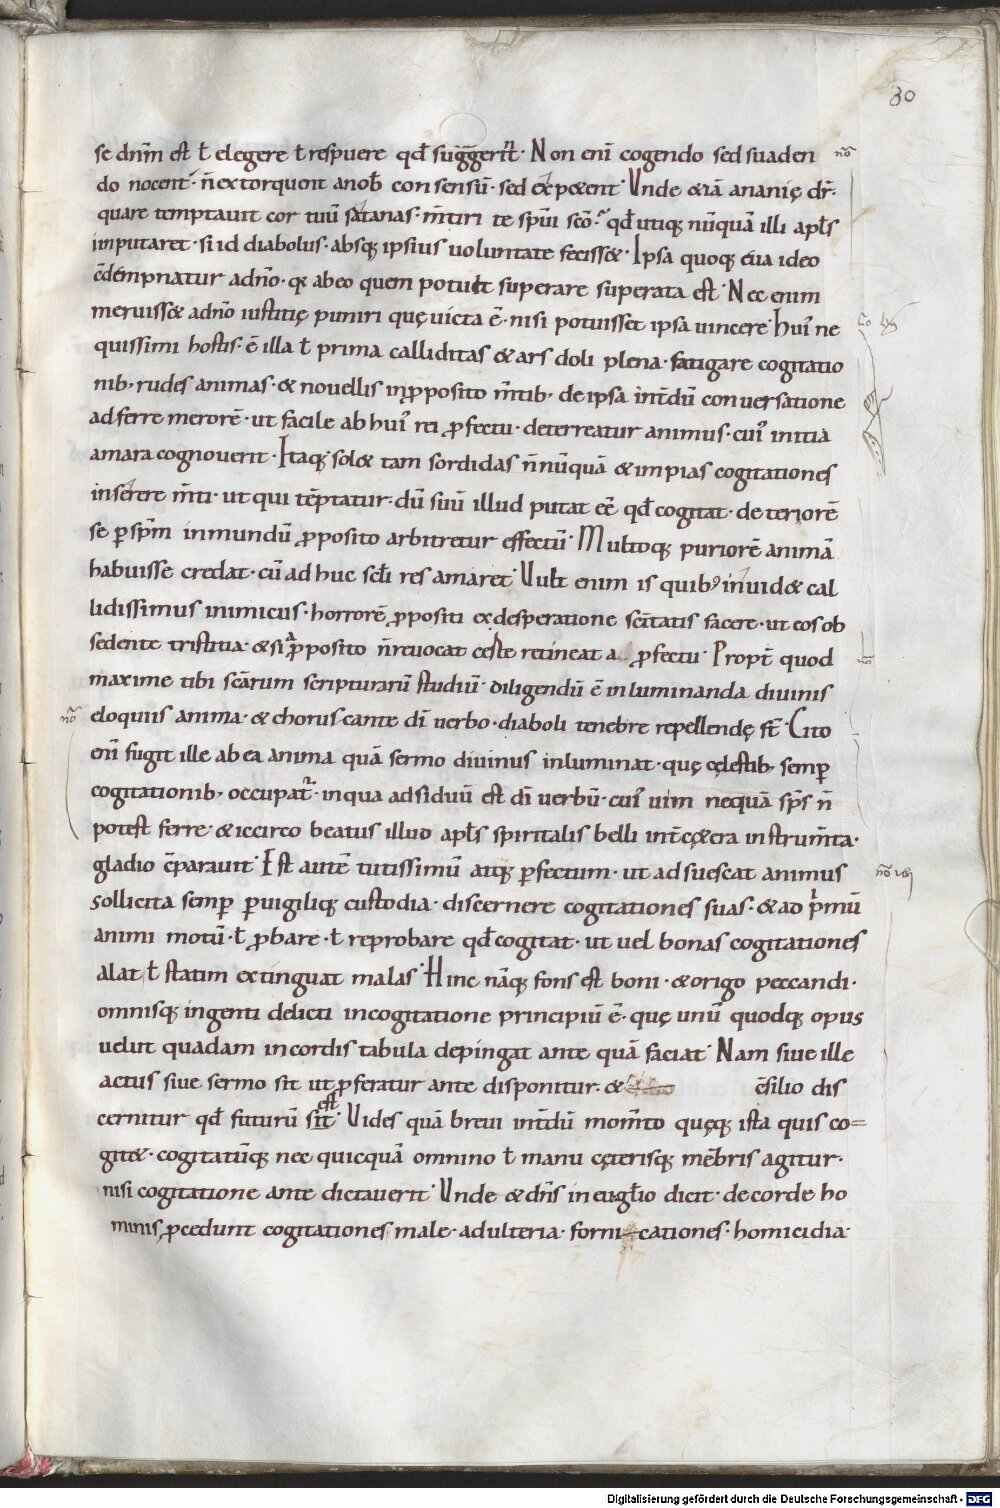 80
se dnm̄ est ł elegere ł respuere qđ suggerit̄. Non enī cogendo sed suaden nō
do nocent. n̄ extorquent a nob̄ consensū. sed expetent. Unde etiā ananię dr̄.
quare temptavit cor tuū satanas. m̄tiri te spūi scō. qđ utiq; nūquā illi apls̄
imputaret. si id diabolus. absq; ipsius voluntate fecisset. Ipsa quoq; eua ideo
c̄dempnatur a dn̄o. q̄ ab eo quem potuit superare superata est. Nec enim
meruisset a dn̄o iustitię puniri quę victa ē. nisi potuisset ipsa vincere. hui᾽ ne
quissimi hostis. ē illa ł prima calliditas & ars doli plena. fatigare cogitatio
nib; rudes animas. & novellis in p̄posito m̄tib; de ipsa int̄dū conversatione
adferre merorē. ut facile ab hui᾽ rei ꝓfectu. deterreatur animus. cui᾽ initia
amara cognoverit. Itaq; solet tam sordidas n̄nūquā & impias cogitationes
inserere m̄ti. ut qui tēptatur. dū suū illud putat eē qđ cogitat. deteriorē
se ꝑ spm̄ inmundū ꝓposito arbitretur effectū. Multoq; puriorē animā
habuisse credat. cū adhuc scl̄i res amaret. Vult enim is quib᾽ invidet cal
lidissimus inimicus. horrorē ꝓpositi ex desperatione sc̄itatis facere. ut eos ob
sedente tristitia. & si a p̄posito n̄ revocat certe retineat a ꝓfectu. Propt̄ quod
maxime tibi scārum scripturarū studiū. diligendū ē inluminanda divinis
nō eloquiis anima. & chorus cante dī verbo. diaboli tenebre repellendę st̄. Cito
enī fugit ille ab ea anima quā sermo divinus inluminat. quę cęlestib; semꝑ
cogitationib; occupat̄. in qua adsiduū est dī verbū. cui᾽ vim nequā sps̄ n̄
potest ferre. & iccirco beatus illud apls̄ spiritalis belli int̄ cętera instrum̄ta.
gladio c̄paravit. Est autē tutissimū atq; ꝑfectum. ut adsuescat animus
sollicita semꝑ ꝑvigiliq; custodia. discernere cogitationes suas. & ad p̄mū
animi motū. ł ꝓbare. ł reprobare qđ cogitat. ut vel bonas cogitationes
alat ł statim extinguat malas. Hinc nāq; fons est boni. & origo peccandi.
omnisq; ingenti delicti in cogitatione principiū ē. quę unū quodq; opus
velut quadam in cordis tabula depingat ante quā faciat. Nam sive ille
actus sive sermo sit ut ꝓferatur ante disponitur. & c̄silio dis
cernitur qđ futurū sit est. Vides quā brevi int̄dū mom̄to quęq; ista quis co=
gitet. cogitatūq; nec quicquā omnino ł manu cęterisq; mēbris agitur.
nisi cogitatione ante dictaverit. Unde & dn̄s in euglio dicit. de corde ho
minis ꝓcedunt cogitationes male. adulteria. fornicationes. homicidia.